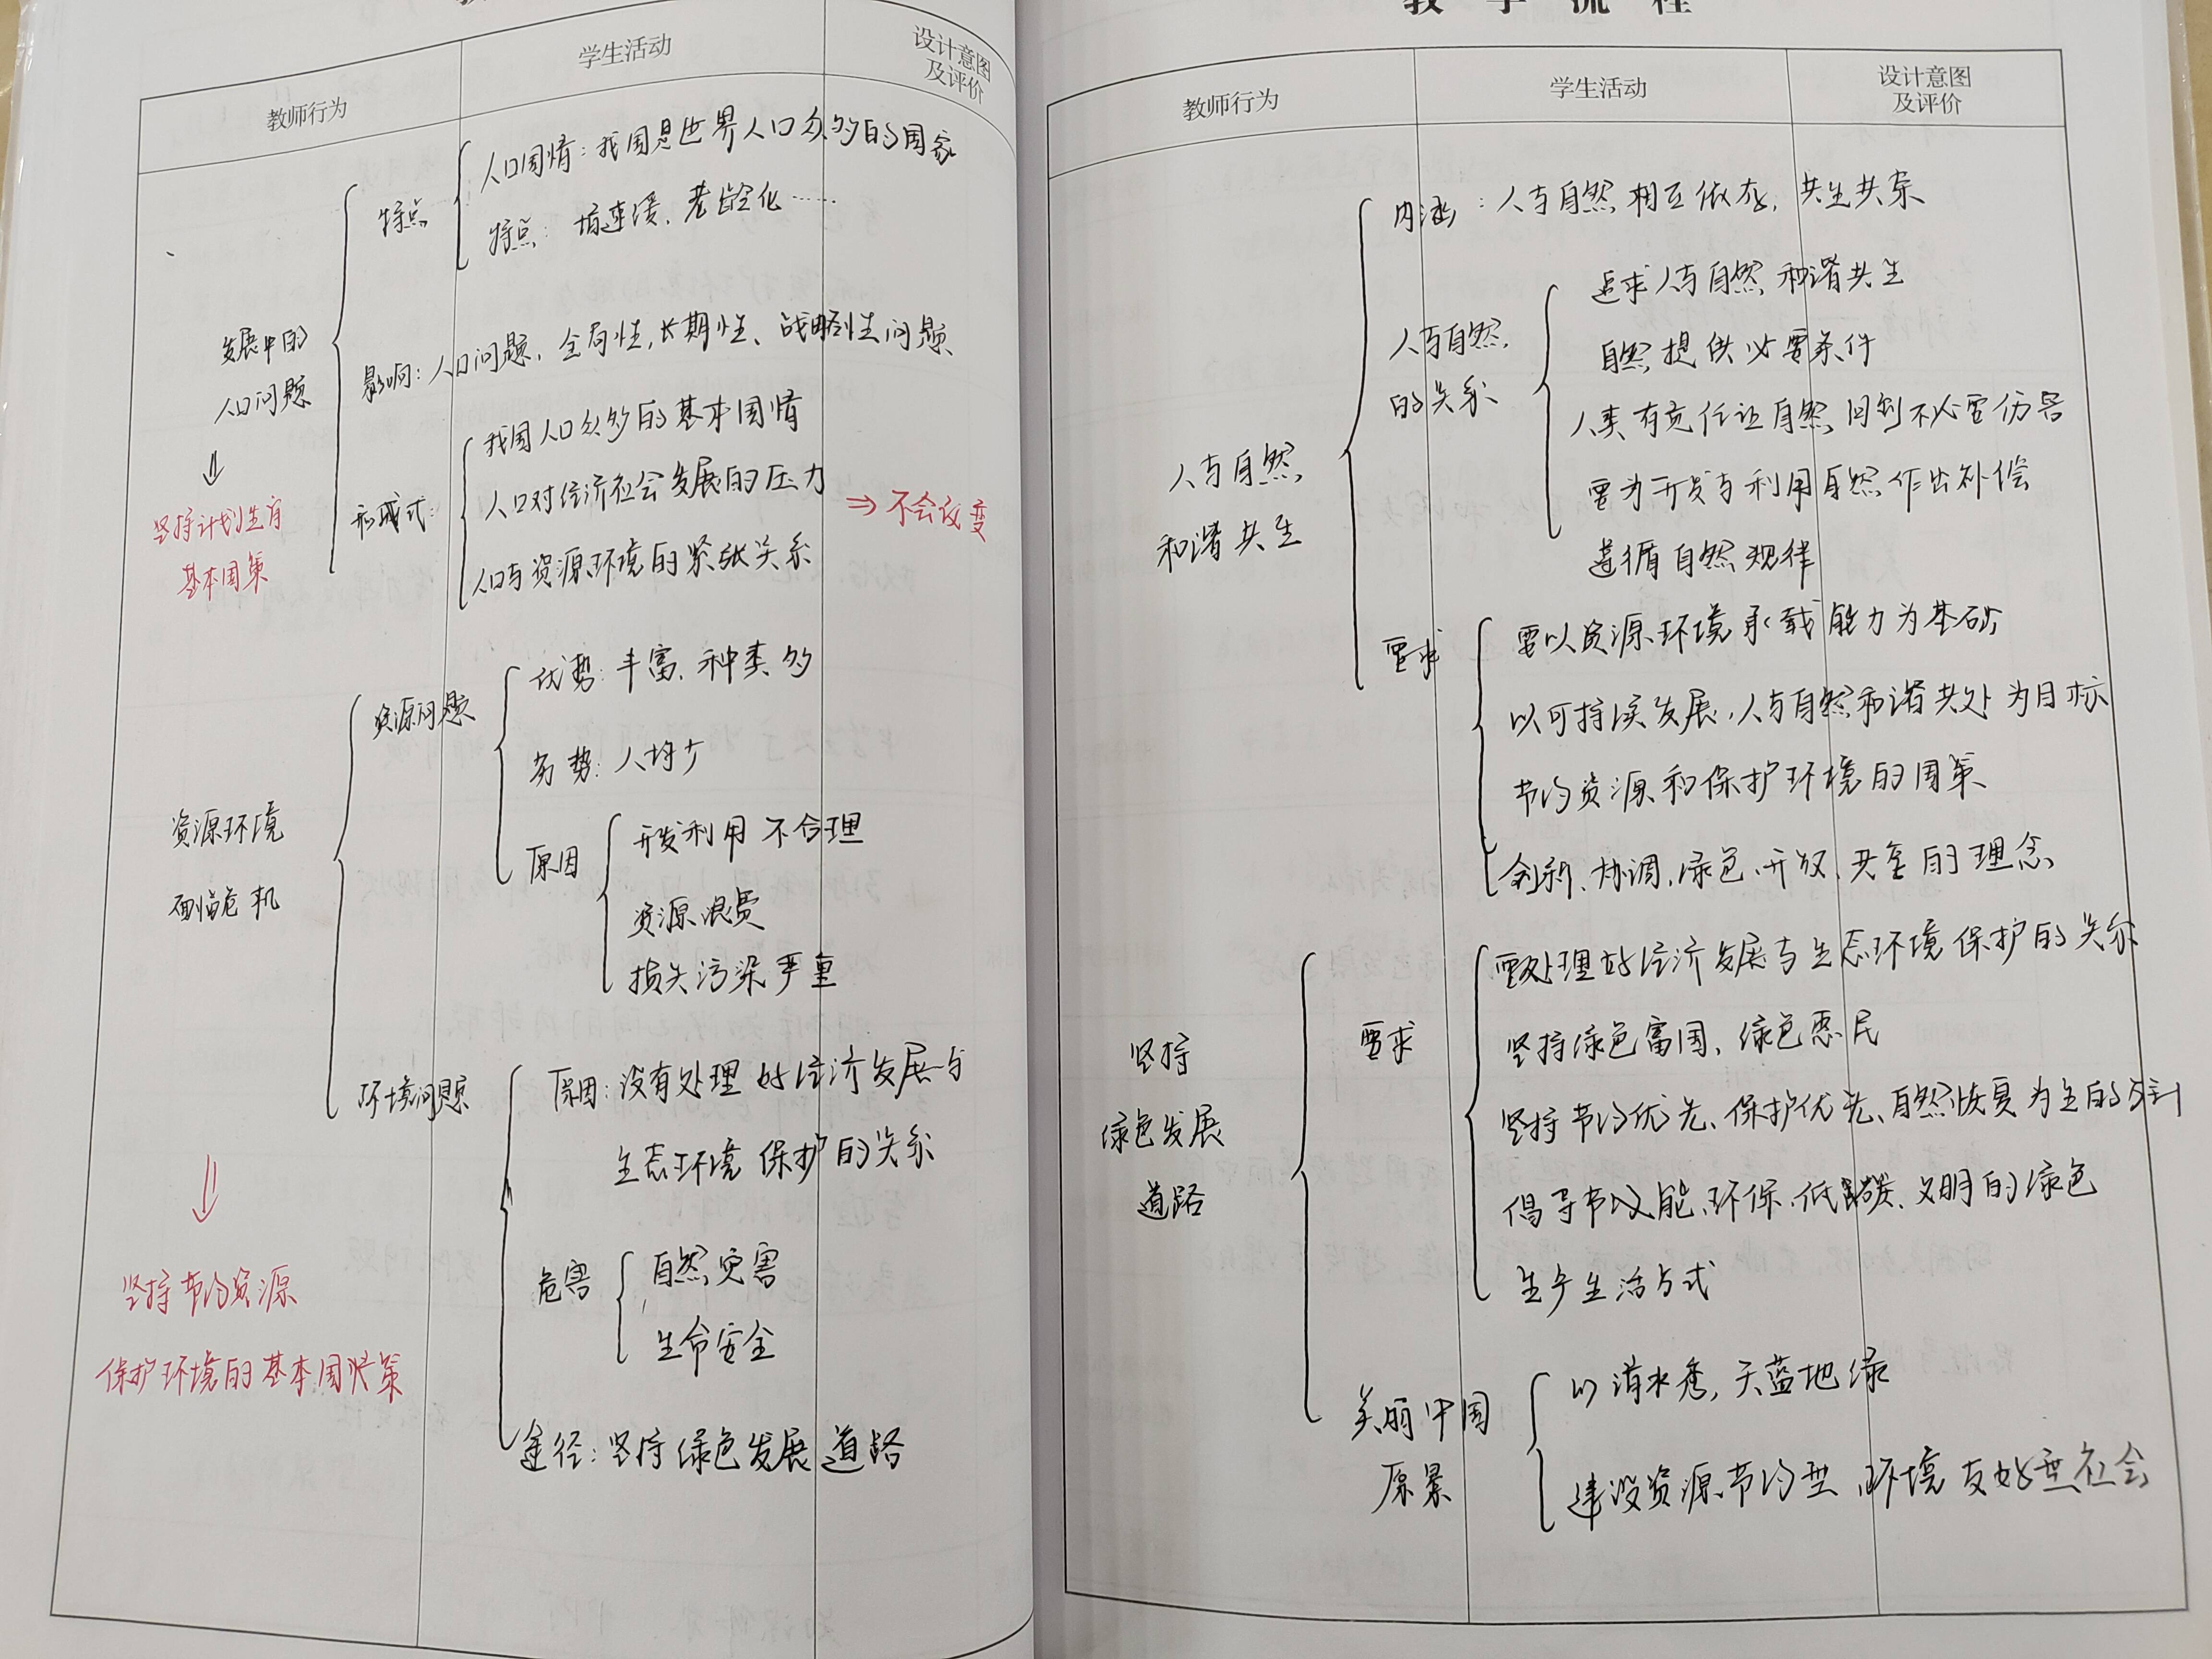 教学流程
教师行为
学生活动
设计意图
及评价
特点
人口国情：我国是世界人口众多的国家
特点：增速缓、老龄化……
发展中的
人口问题
影响：人口问题，全局性，长期性、战略性问题
我国人口众多的基本国情
人口对经济社会发展的压力
人口与资源环境的紧张关系
⇒不会改变
坚持计划生育
基本国策
资源问题
优势：丰富，种类多
劣势：人均少
原因
开发利用不合理
资源浪费
损失污染严重
资源环境
面临危机
环境问题
原因：没有处理好经济发展与
生态环境保护的关系
危害
自然灾害
生命安全
途径：坚持绿色发展道路
坚持节约资源
保护环境的基本国策
教师行为
学生活动
设计意图
及评价
内涵：人与自然相互依存，共生共荣
人与自然
的关系
追求人与自然和谐共生
自然提供必要条件
人类有责任让自然回到不必要伤害
要为开发与利用自然作出补偿
遵循自然规律
人与自然
和谐共生
要求
要以资源环境承载能力为基础
以可持续发展，人与自然和谐共处为目标
节约资源和保护环境的国策
创新、协调，绿色，开放，共享的理念
坚持
绿色发展
道路
要求
要处理好经济发展与生态环境保护的关系
坚持绿色富国，绿色惠民
坚持节约优先、保护优先、自然恢复为主的方针
倡导节约能，环保，低碳，文明的绿色
生产生活方式
美丽中国
原景
山清水秀，天蓝地绿
建设资源节约型，环境友好型社会